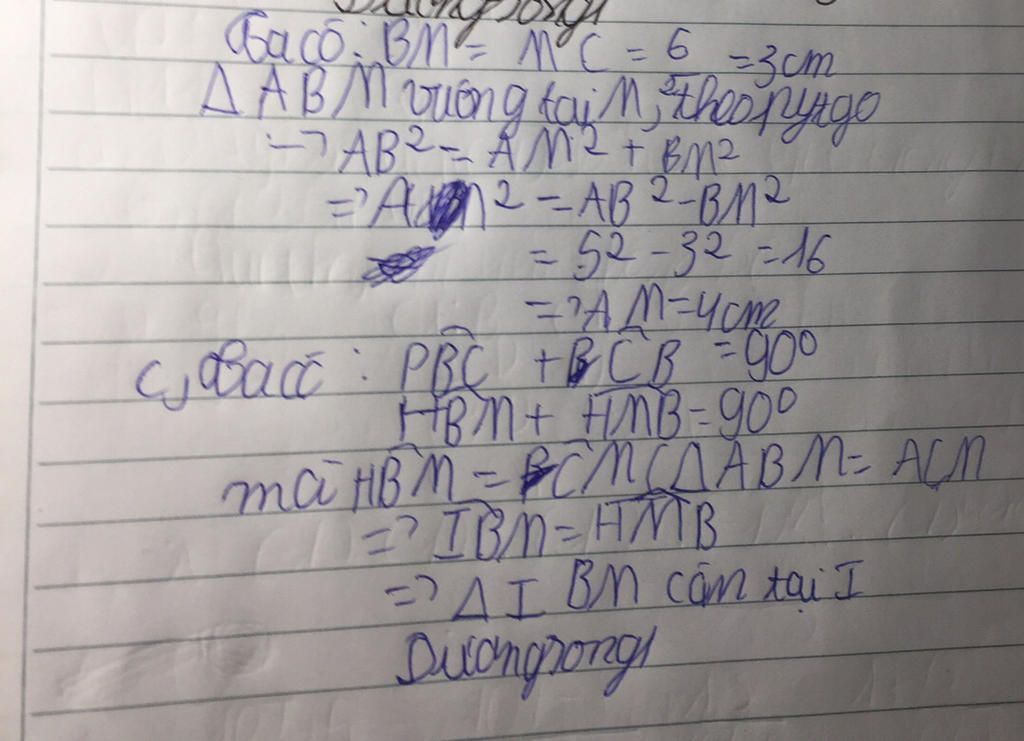 Duongsong1
Ta có: BM = MC = 6/2 = 3cm
Δ ABM vuông tại M, theo pytago
=> AB² = AM² + BM²
=> AM² = AB² - BM²
= 5² - 3² = 16
=> AM = 4cm
c, Ta có: PBC + PCB = 90°
HBM + HMB = 90°
mà HBM = PCM (Δ ABM = ACM
=> IBM = HMB
=> Δ I BM cân tại I
Duongsong1